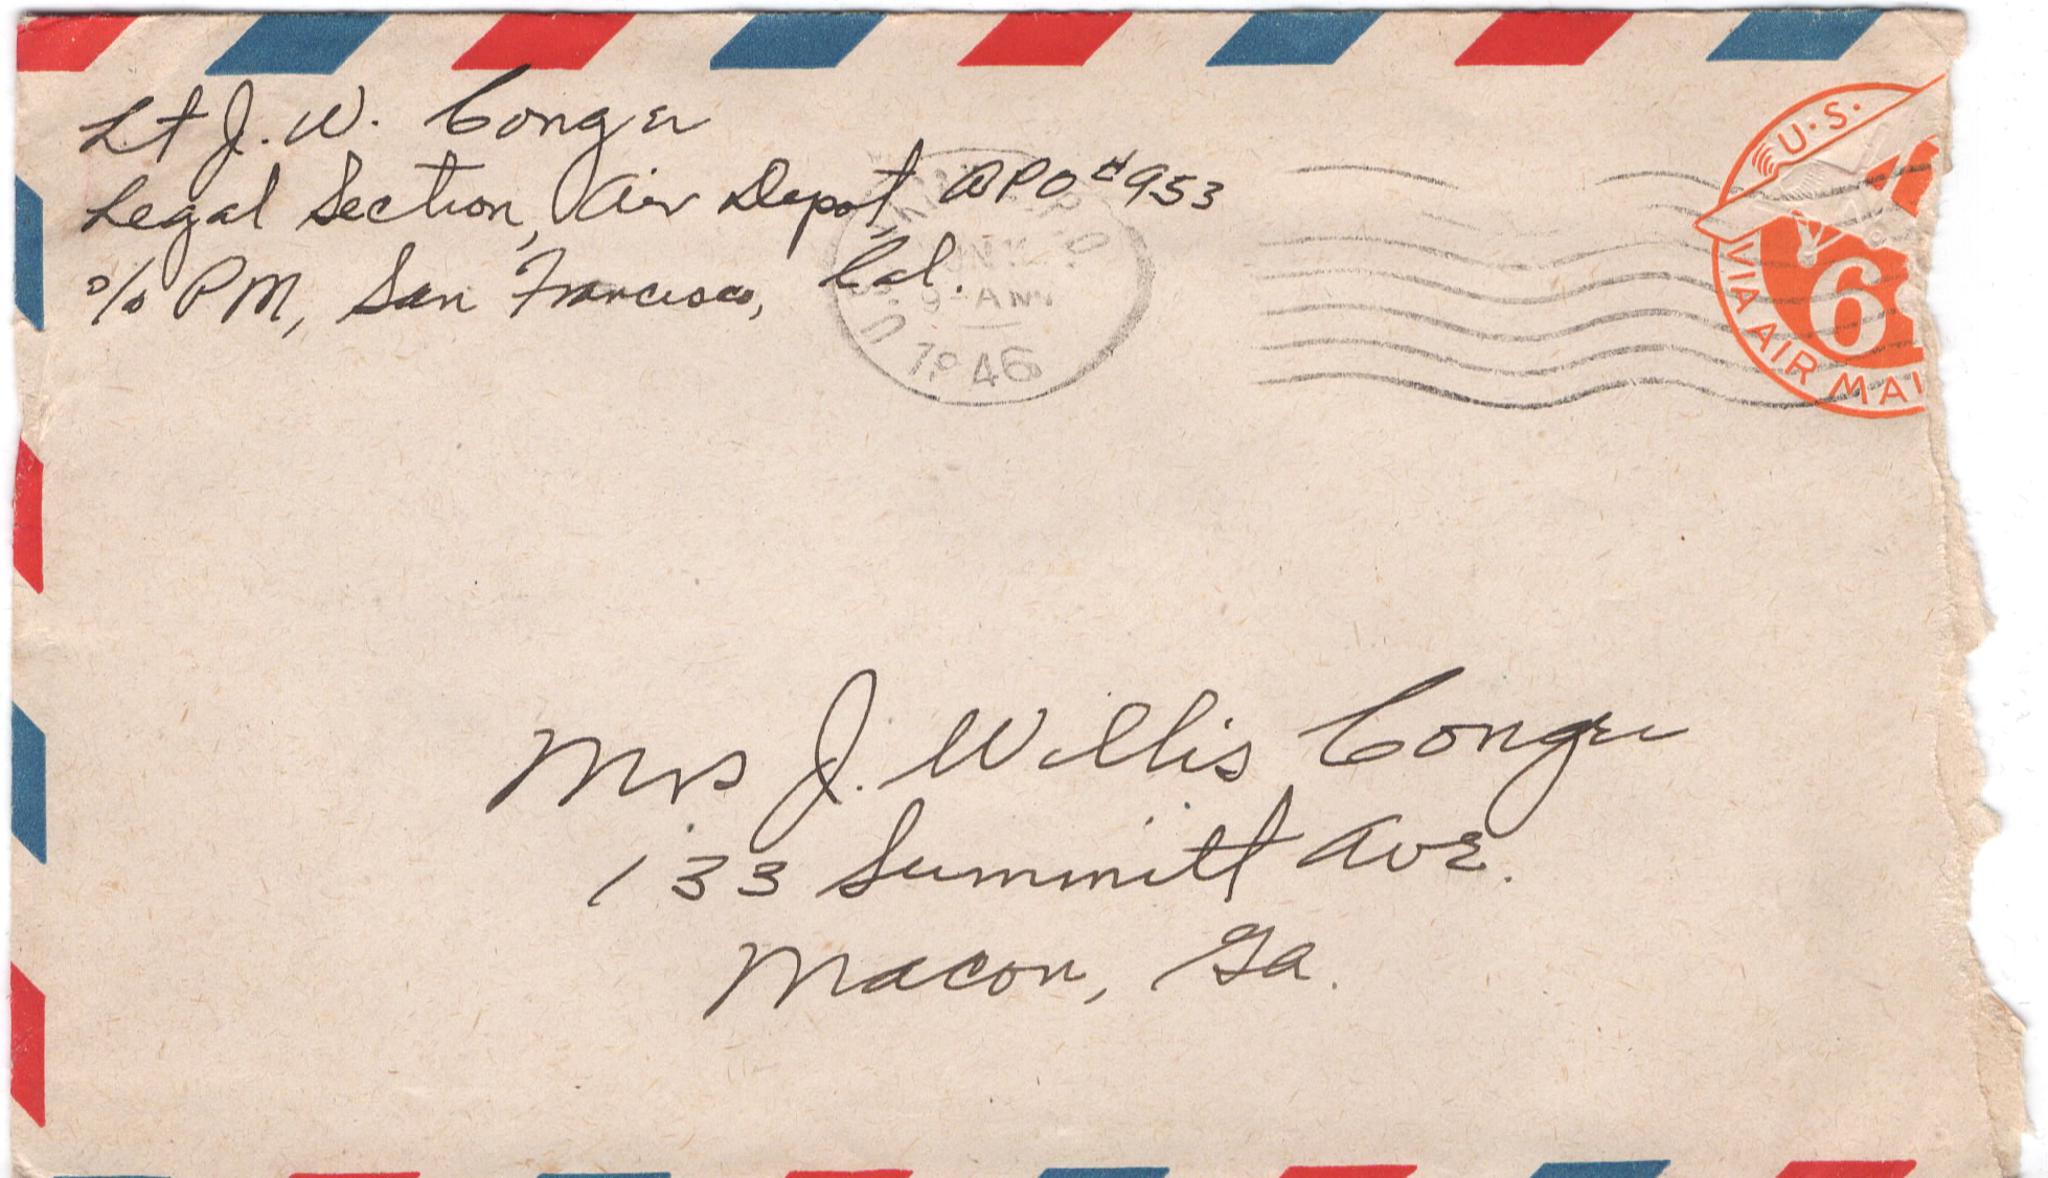 Lt J. W. Conger
Legal Section, Air Depot, APO #953
c/o PM, San Francisco, Cal.
9 - AM
1946
U.S.
VIA AIR MAI
6
Mrs J. Willis Conger
133 Summitt Ave.
Macon, Ga.